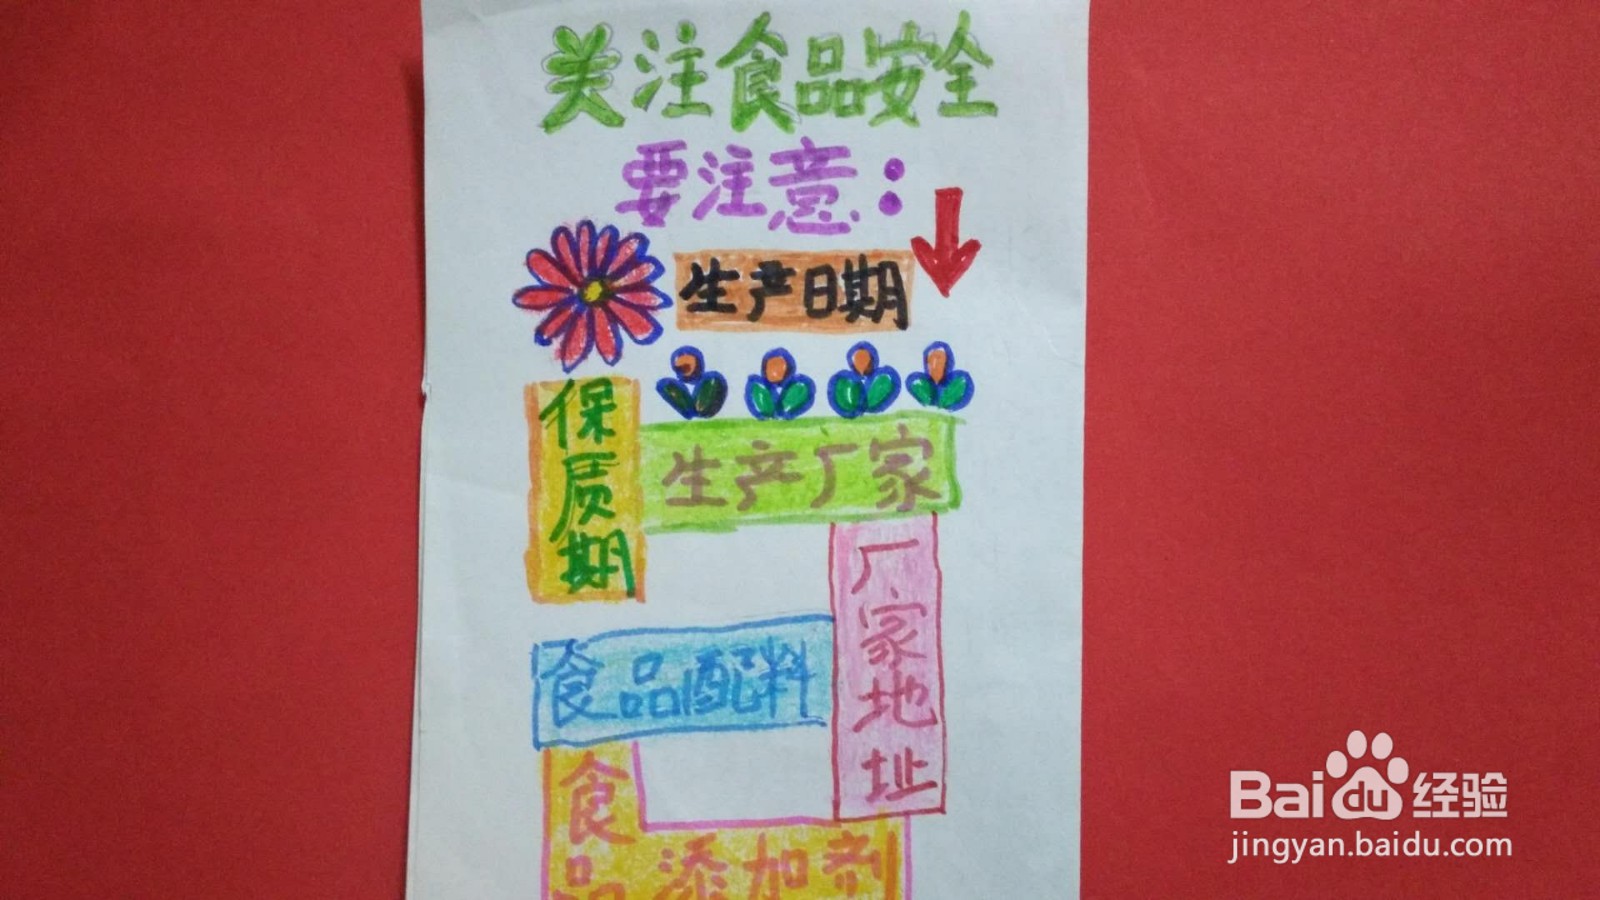 关注食品安全
要注意：
生产日期
保质期
生产厂家
厂家地址
食品配料
食品添加剂
Baidu经验
jingyan.baidu.com